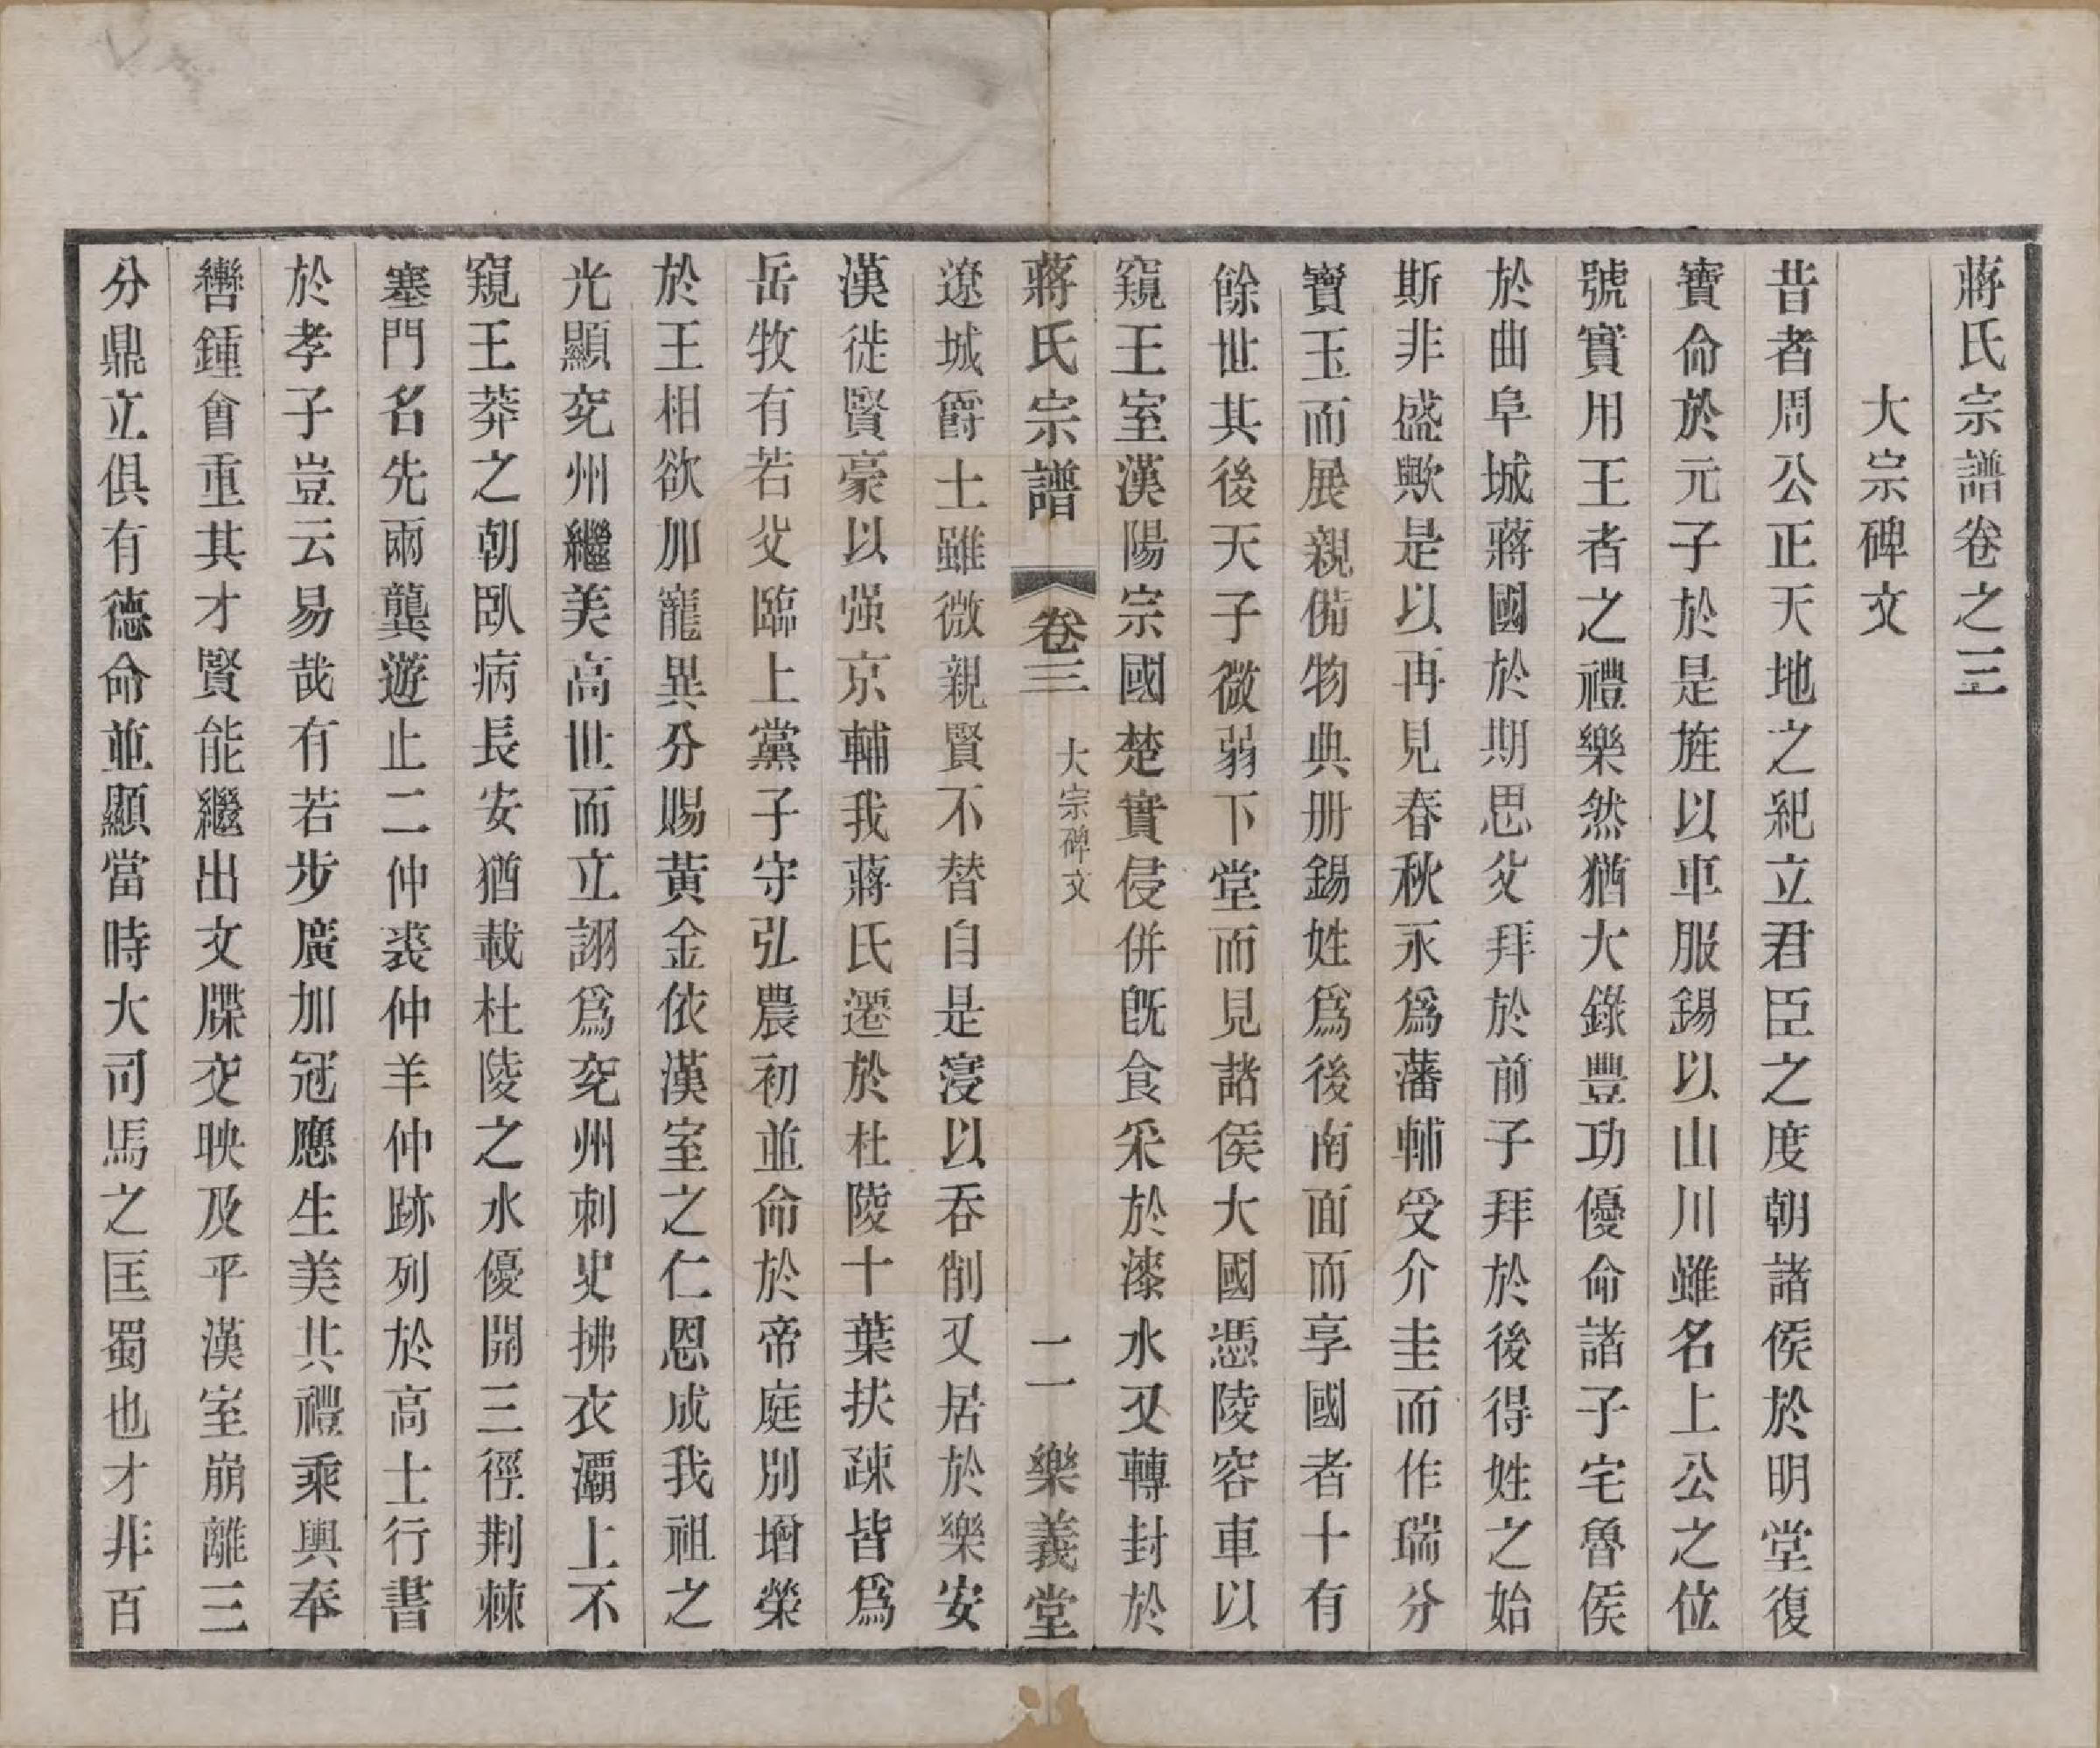 蔣氏宗譜卷之三
大宗碑文
昔者周公正天地之紀立君臣之度朝諸侯於明堂復
寶命於元子於是旌以車服錫以山川雖名上公之位
號實用王者之禮樂然猶大錄豐功優命諸子宅魯侯
於曲阜城蔣國於期思父拜於前子拜於後得姓之始
斯非盛歟是以再見春秋永爲藩輔受介圭而作瑞分
寶玉而展親備物典册錫姓爲後南面而享國者十有
餘世其後天子微弱下堂而見諸侯大國憑陵容車以
窺王室漢陽宗國楚實侵併旣食采於漆水又轉封於
蔣氏宗譜 卷三 大宗碑文 二 樂義堂
遼城爵土雖微親賢不替自是寖以吞削又居於樂安
漢徙賢豪以强京輔我蔣氏遷於杜陵十葉扶疎皆爲
岳牧有若父臨上黨子守弘農初並命於帝庭別增榮
於王相欲加寵異分賜黃金依漢室之仁恩成我祖之
光顯兖州繼美高世而立詡爲兖州刺史拂衣灞上不
窺王莽之朝臥病長安猶載杜陵之水優開三徑荆棘
塞門名先兩龔遊止二仲裘仲羊仲跡列於高士行書
於孝子豈云易哉有若步廣加冠應生美共禮乘輿奉
轡鍾會重其才賢能繼出文牒交映及平漢室崩離三
分鼎立俱有德命並顯當時大司馬之匡蜀也才非百